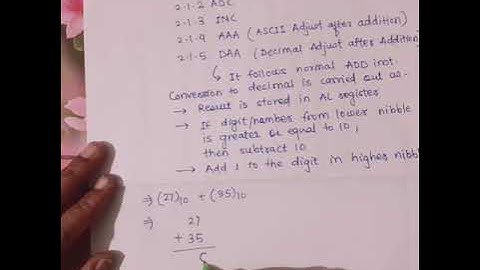 2.1.2 ADC
2.1.3 INC
2.1.4 AAA (ASCII Adjust after addition)
2.1.5 DAA (Decimal Adjust after Addition
↳ It follows normal ADD inst.
Conversion to decimal is carried out as-
→ Result is stored in AL register
→ If digit/number from lower nibble
is greater or equal to 10,
then subtract 10
→ Add 1 to the digit in higher nibbl
⇒ (27)10 + (35)10
⇒ 27
+ 35